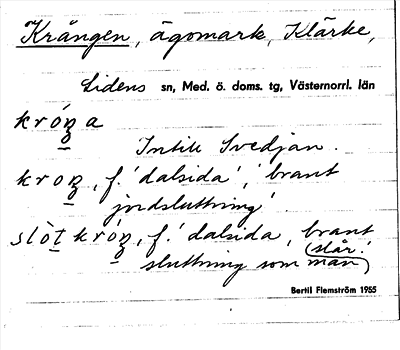 Krången, ägomark, Klärke,
Lidens sn, Med. ö. doms. tg, Västernorrl. län
króŋa
Intill Svedjan.
kroŋ, f. 'dalsida', 'brant
jordsluttning'
slòt króŋ, f. 'dalsida, brant
sluttning som man slår.'
Bertil Flemström 1955